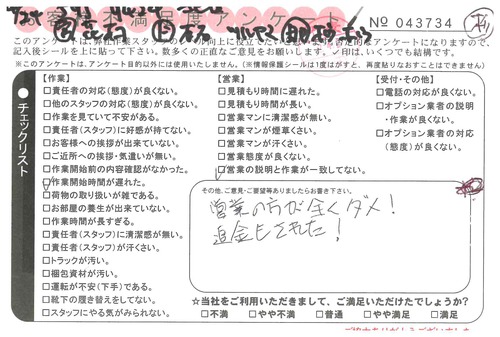 お客様不満足度アンケート
№ 043734
このアンケートは、弊社作業スタッフのレベル向上に役立てたいと思います。否定的なアンケートになりますので、
記入後シールを上に貼って下さい。数多くの正直なご意見をお願いします。✓印は、いくつでも結構です。
※このアンケートは、アンケート目的以外には使用いたしません。(※情報保護シールは1度はがすと、再度貼りなおすことはできません)
●チェックリスト
【作業】
□責任者の対応(態度)が良くない。
□他のスタッフの対応(態度)が良くない。
□作業を見ていて不安がある。
□責任者(スタッフ)に好感が持てない。
□お客様への挨拶が出来ていない。
□ご近所への挨拶・気遣いが無い。
□作業開始前の内容確認がなかった。
□作業開始時間が遅れた。
□荷物の取り扱いが雑である。
□お部屋の養生が出来ていない。
□作業時間が長すぎる。
□責任者(スタッフ)に清潔感が無い。
□責任者(スタッフ)が汗くさい。
□トラックが汚い。
□梱包資材が汚い。
□運転が不安(下手)である。
□靴下の履き替えをしてない。
□スタッフにやる気がみられない。
【営業】
□見積もり時間に遅れた。
□見積もり時間が長い。
□営業マンに清潔感が無い。
□営業マンが煙草くさい。
□営業マンが汗くさい。
□営業態度が良くない。
□営業の説明と作業が一致してない。
【受付・その他】
□電話の対応が良くない。
□オプション業者の説明
・作業が良くない。
□オプション業者の対応
(態度)が良くない。
その他、ご意見・ご要望等ありましたらお書き下さい。
営業の方が全くダメ!
追金もされた!
☆当社をご利用いただきまして、ご満足いただけたでしょうか?
□不満 □やや不満 □普通 □やや満足 □満足
ご協力ありがとうございました